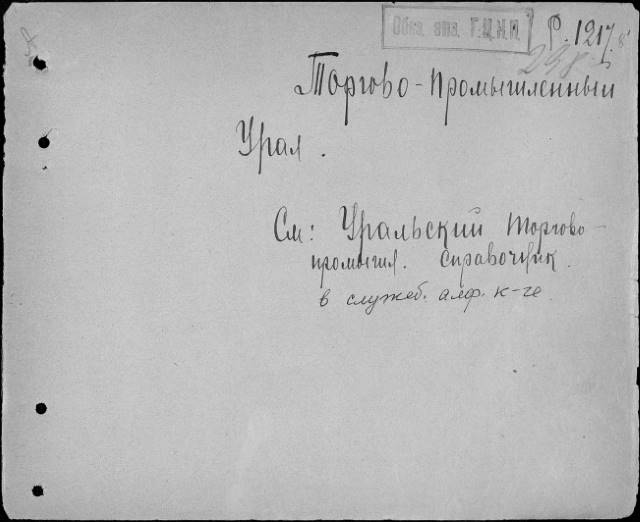 Обяз. экз. Г.Ц.К.П. Р. 1217.
Торгово-промышленный
Урал.
См: Уральский торгово-
промышл. справочник.
в служеб. алф. к-ге.